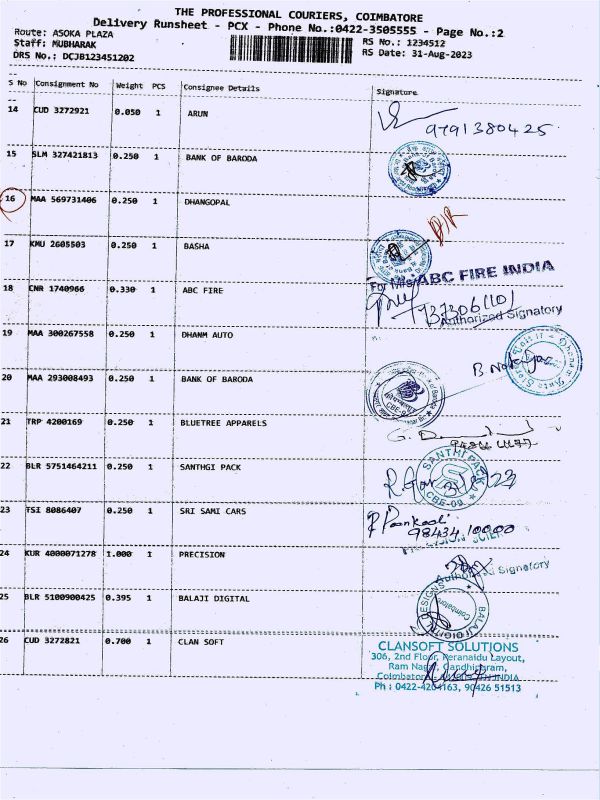 THE PROFESSIONAL COURIERS, COIMBATORE
Delivery Runsheet - PCX - Phone No.:0422-3505555 - Page No.:2
Route: ASOKA PLAZA
Staff: MUBHARAK
DRS No.: DCJB123451202
RS No.: 1234512
RS Date: 31-Aug-2023
S No Consignment No Weight PCS Consignee Details Signature
14 CUD 3272921 0.050 1 ARUN
9791380425
15 SLM 327421813 0.250 1 BANK OF BARODA
16 MAA 569731406 0.250 1 DHANGOPAL
D/R
17 KMU 2605503 0.250 1 BASHA
For M/s ABC FIRE INDIA
18 CNR 1740966 0.330 1 ABC FIRE
Authorized Signatory
19 MAA 300267558 0.250 1 DHANM AUTO
20 MAA 293008493 0.250 1 BANK OF BARODA
CBE-
21 TRP 4200169 0.250 1 BLUETREE APPARELS
22 BLR 5751464211 0.250 1 SANTHGI PACK
SANTHI PACK
CBE-09
23 TSI 8086407 0.250 1 SRI SAMI CARS
98434 10000
24 KUR 4000071278 1.000 1 PRECISION
Authorized Signatory
25 BLR 5100900425 0.395 1 BALAJI DIGITAL
BALAJI DIGITAL DESIGNS
Coimbatore
26 CUD 3272821 0.700 1 CLAN SOFT
CLANSOFT SOLUTIONS
306, 2nd Floor, Keranaidu Layout,
Ram Nagar, Gandhipuram,
Coimbatore INDIA
Ph : 0422-4204163, 90426 51513